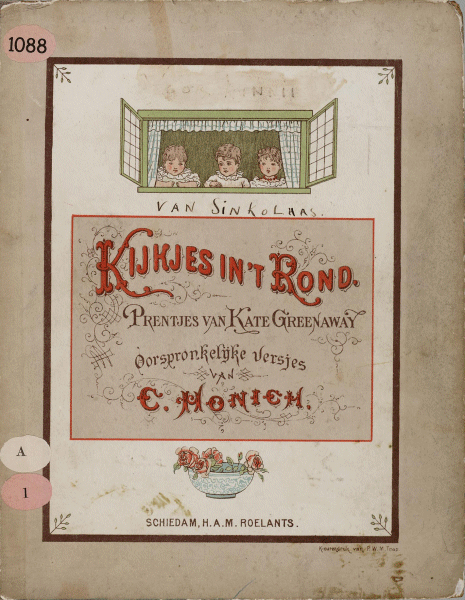 1088
VAN SINKOLAAS.
KIJKJES IN'T ROND.
PRENTJES VAN KATE GREENAWAY
Oorspronkelijke Versjes
VAN
C. HONIGH.
A
1
SCHIEDAM, H.A.M. ROELANTS.
Kleurendruk van P. W. M. Trap